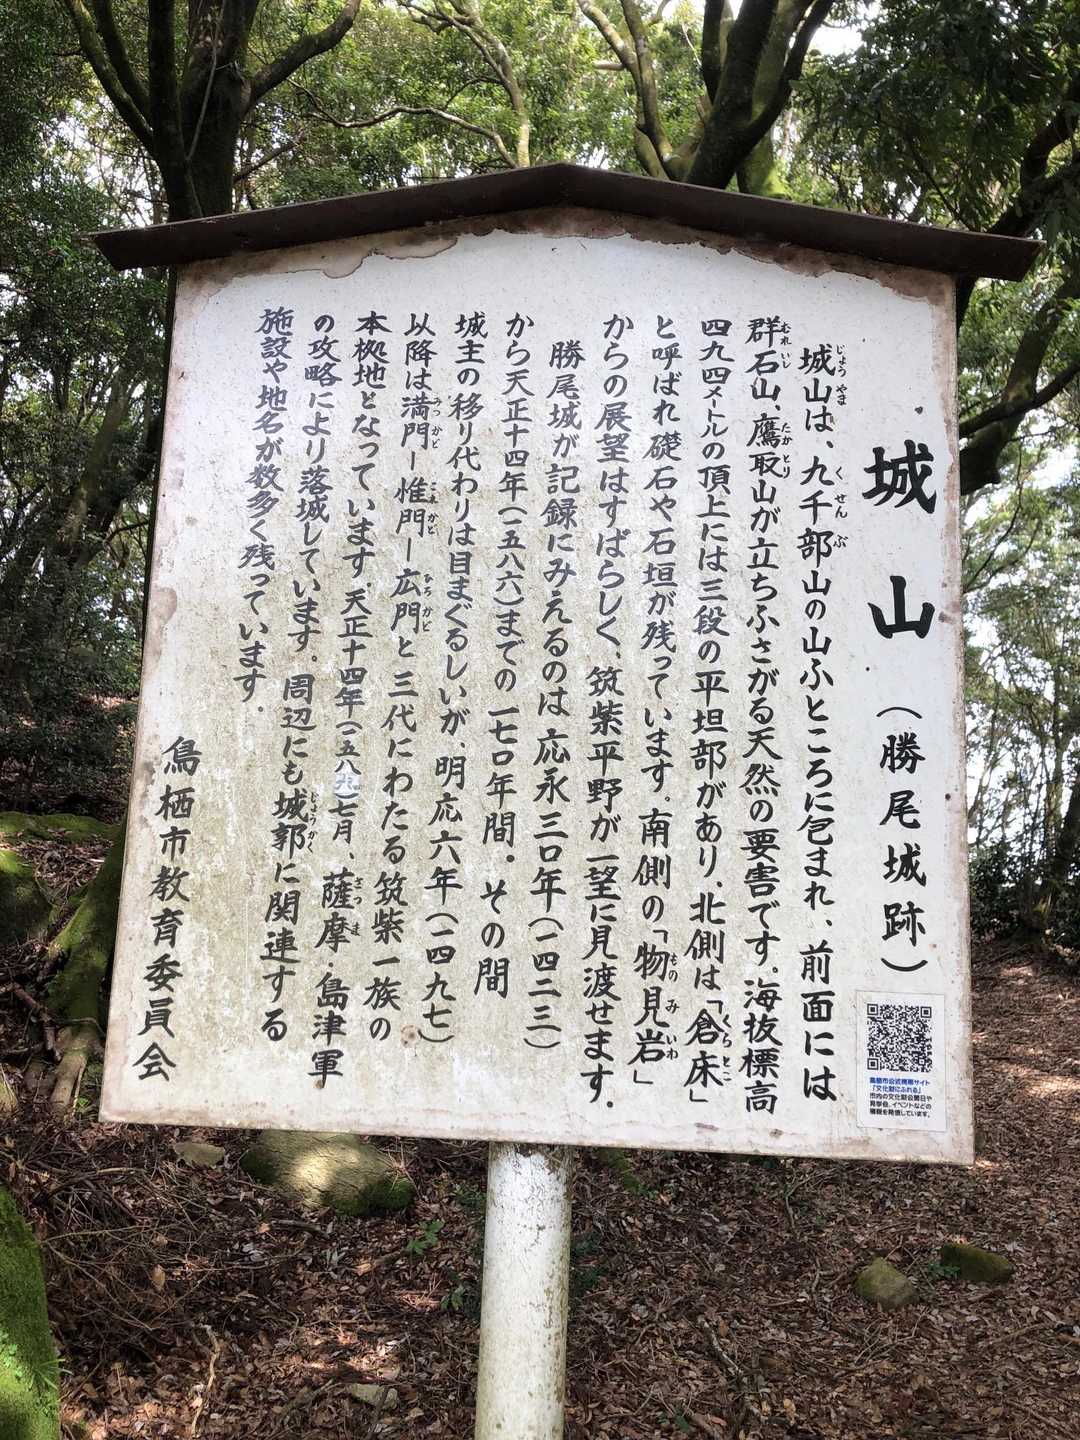 城山（勝尾城跡）
城山は、九千部山の山ふところに包まれ、前面には
群石山、鷹取山が立ちふさがる天然の要害です。海抜標高
四九四メートルの頂上には三段の平坦部があり、北側は「倉床」
と呼ばれ礎石や石垣が残っています。南側の「物見岩」
からの展望はすばらしく、筑紫平野が一望に見渡せます。
勝尾城が記録にみえるのは応永三〇年（一四二三）
から天正十四年（一五八六）までの一七〇年間。その間
城主の移り代わりは目まぐるしいが、明応六年（一四九七）
以降は満門―惟門―広門と三代にわたる筑紫一族の
本拠地となっています。天正十四年（一五八六）七月、薩摩・島津軍
の攻略により落城しています。周辺にも城郭に関連する
施設や地名が数多く残っています。
鳥栖市教育委員会
じょうやま
くせんぶ
むれいし
たかとり
くらとこ
ものみいわ
みつかど
これかど
ひろかど
さつま
じょうかく
鳥栖市公式携帯サイト
「文化財にふれる」
市内の文化財公開日や
見学会、イベントなどの
情報を発信しています。